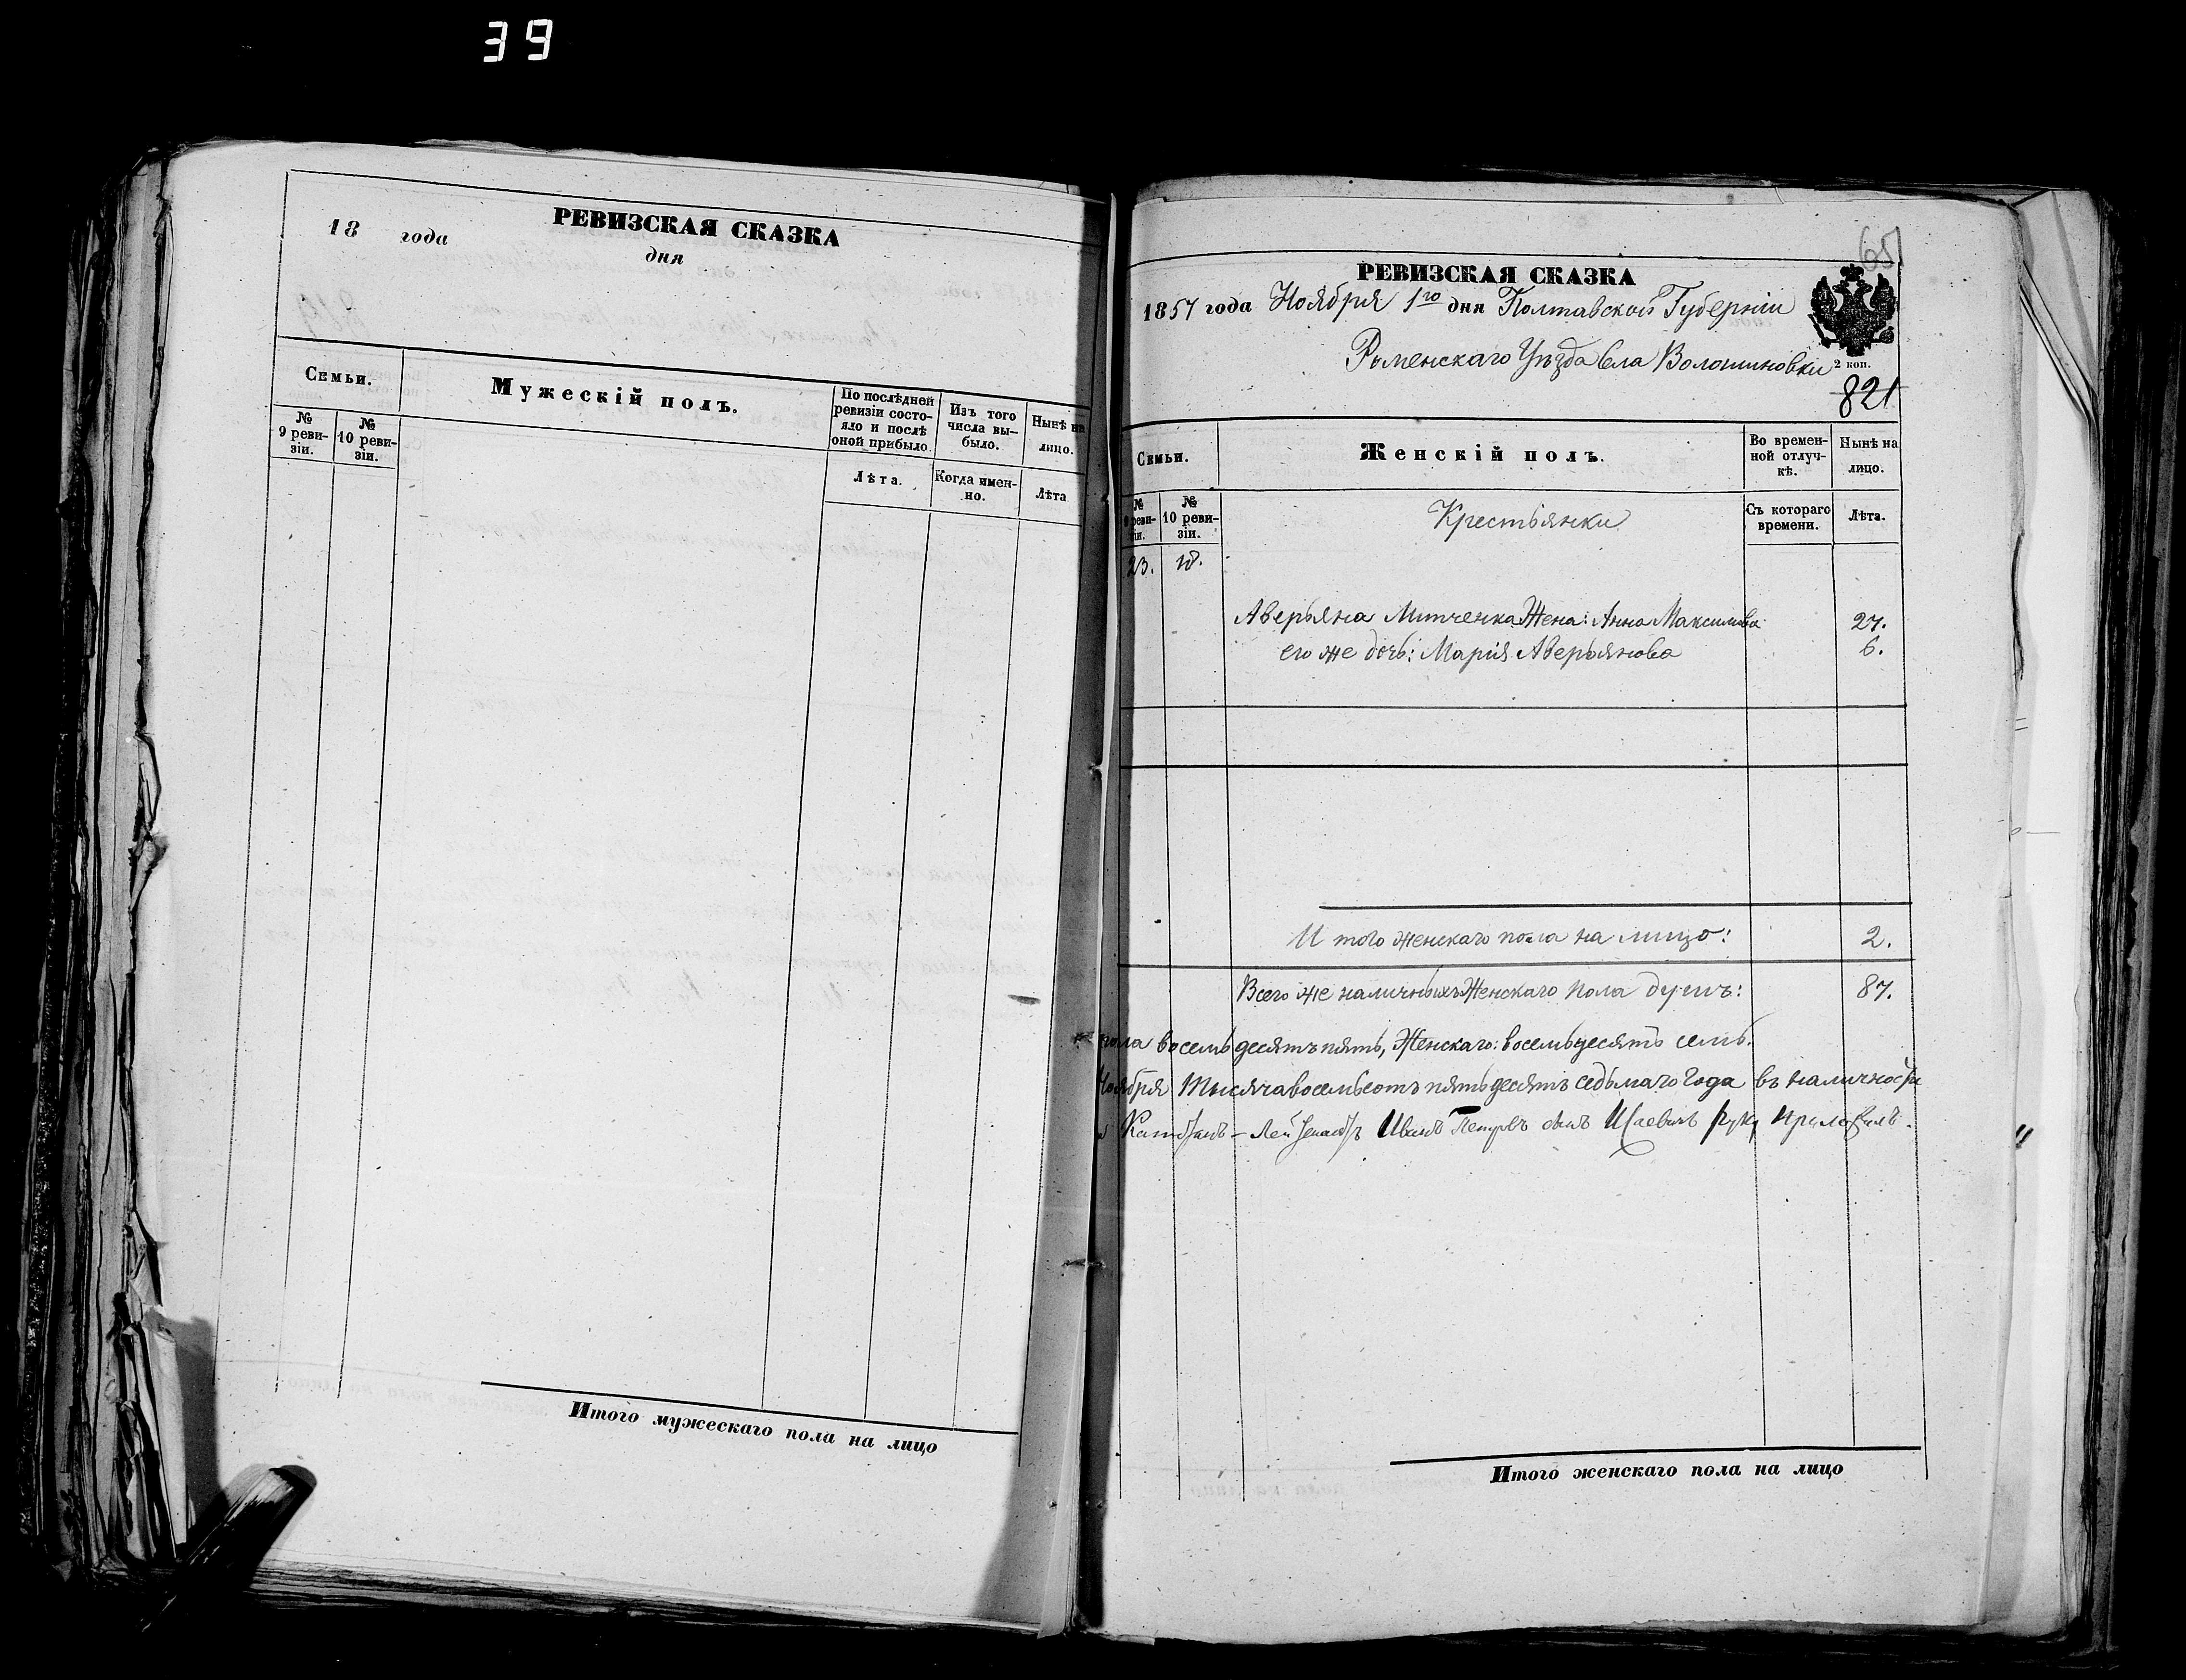 39
РЕВИЗСКАЯ СКАЗКА
18 года дня
Семьи.
Мужескій полъ.
По послѣдней ревизіи состояло и послѣ оной прибыло.
Изъ того числа выбыло.
Нынѣ на лицо.
№ 9 ревизіи.
№ 10 ревизіи.
Лѣта.
Когда именно.
Лѣта
Итого мужескаго пола на лицо
65
РЕВИЗСКАЯ СКАЗКА
1857 года Ноября 1го дня Полтавской Губерніи
Роменскаго Уѣзда Села Волошиновки
2 коп.
821
Семьи.
Женскій полъ.
Во временной отлучкѣ.
Нынѣ на лицо.
№ 9 ревизіи.
№ 10 ревизіи.
Крестьянки
Съ котораго времени.
Лѣта.
23.
Аверьяна Митченка Жена: Анна Максимова 27.
его же дочь: Марія Аверьянова 6.
Итого женскаго пола на лицо: 2.
Всего же наличныхъ Женскаго пола душъ: 87.
пола восемьдесятъ пять, Женскаго: восемьдесятъ семь.
Ноября тысяча восемьсотъ пятьдесятъ седьмаго года въ наличности
Капитанъ-Лейтенантъ Иванъ Петровъ сынъ руку приложилъ.
Итого женскаго пола на лицо